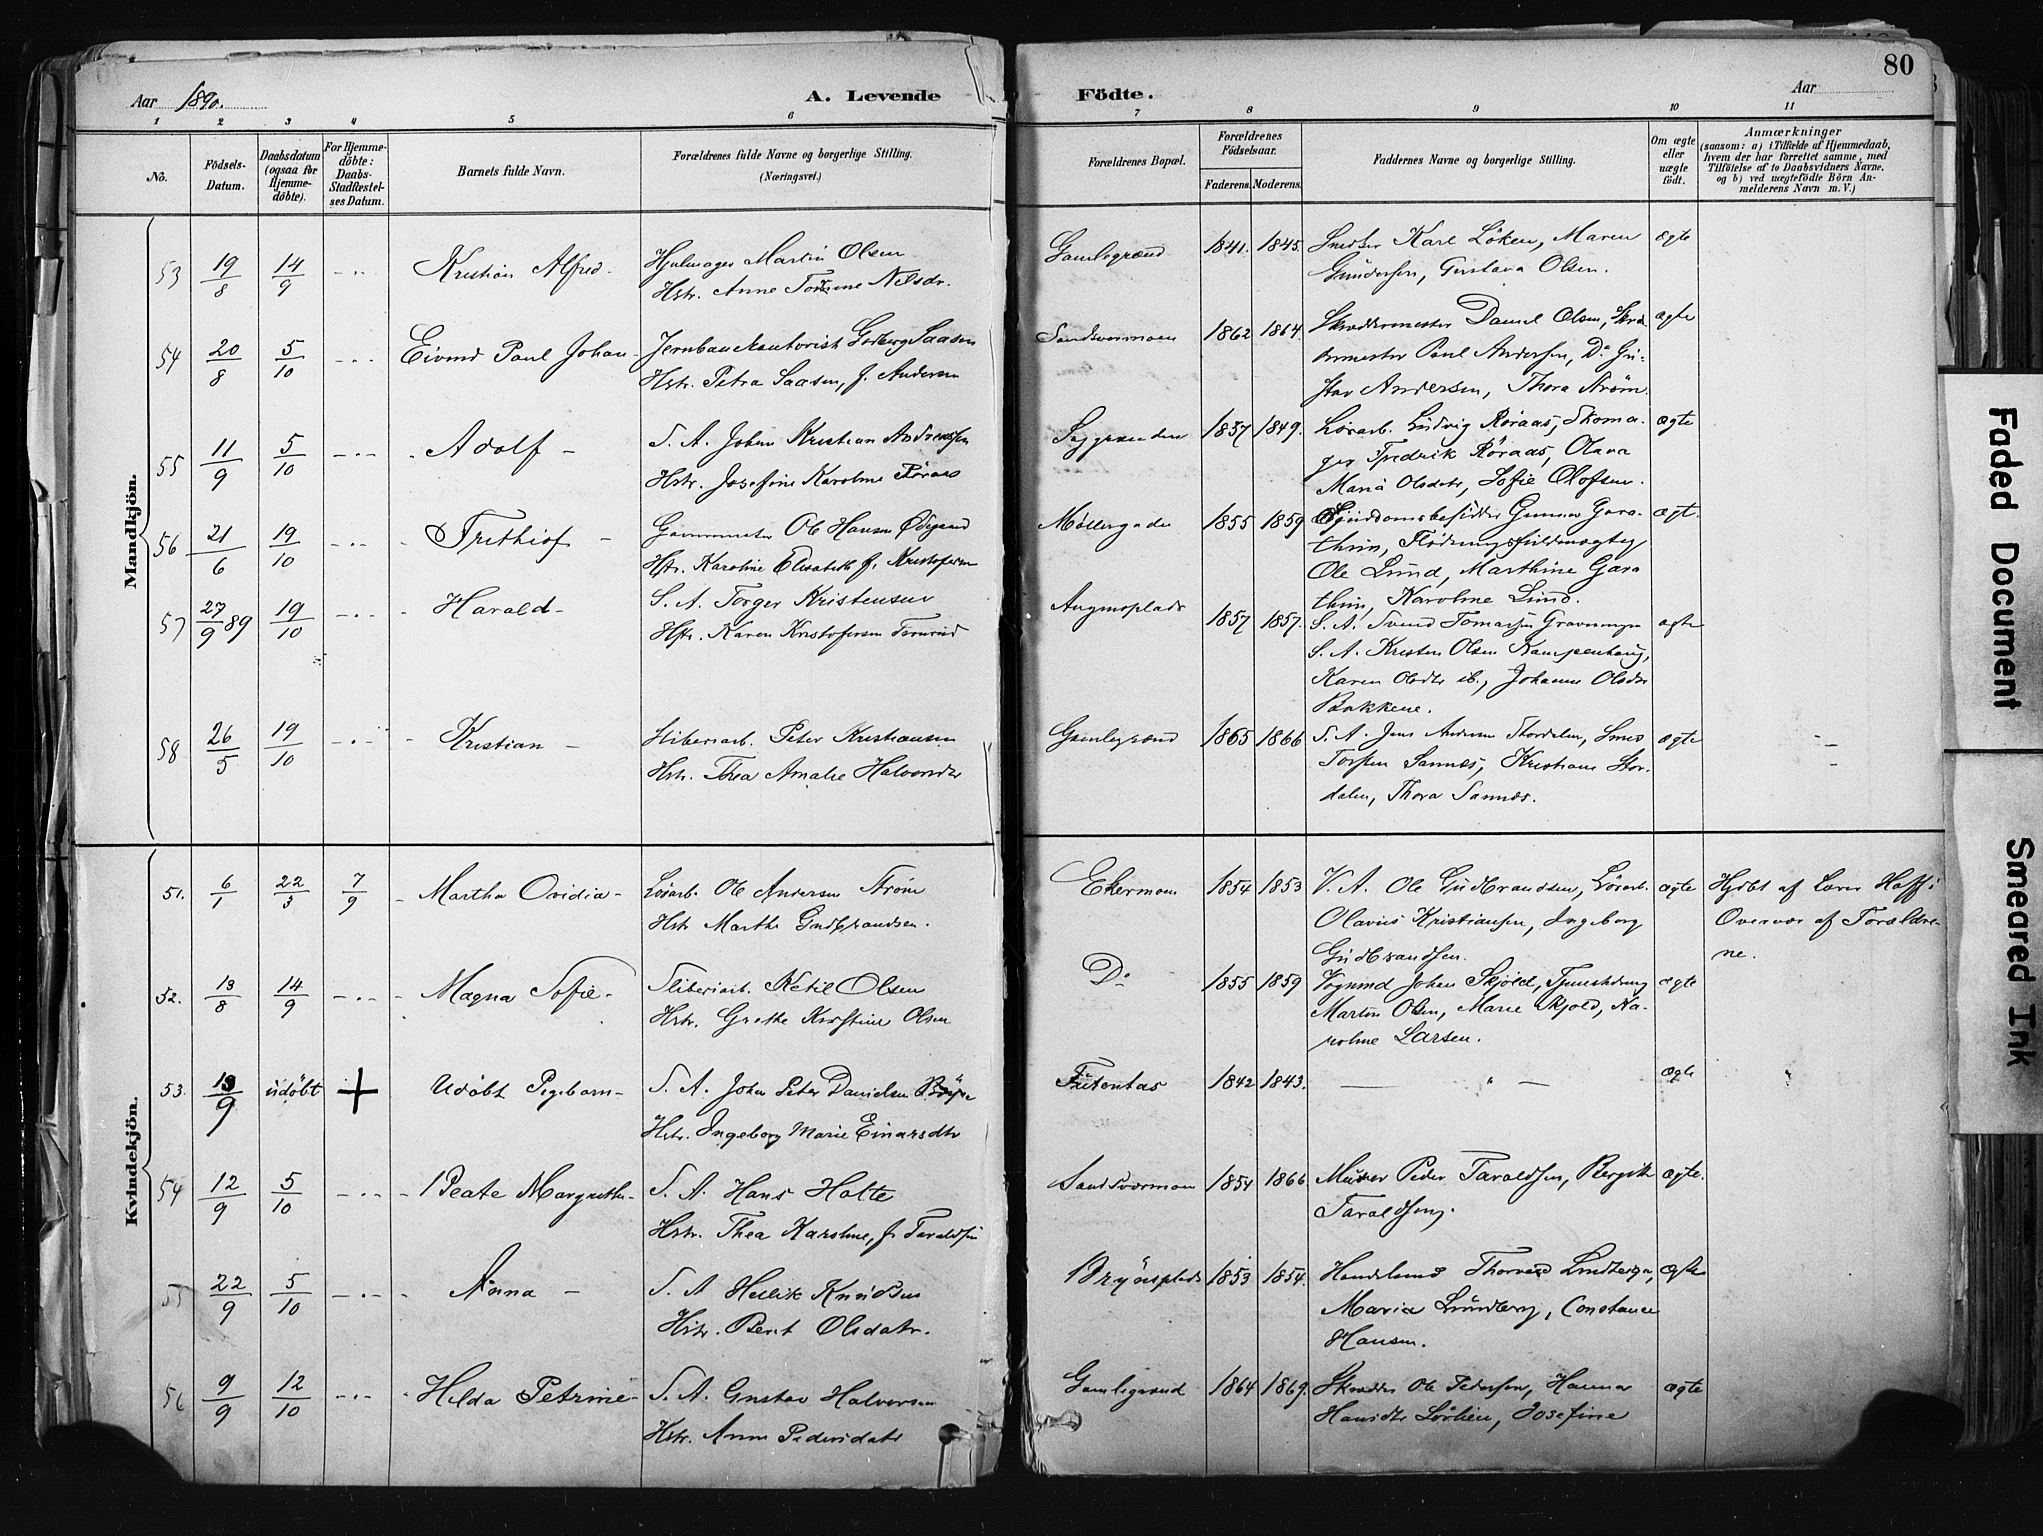 80
Aar 1890.
A. Levende
Födte.
Aar
1 2 3 4 5 6 7 8 9 10 11
No.
Födsels-Datum.
Daabsdatum (ogsaa for Hjemme-döbte).
For Hjemme-döbte: Daabs-Stadfæstel-ses Datum.
Barnets fulde Navn.
Forældrenes fulde Navne og borgerlige Stilling.
(Næringsvei.)
Forældrenes Bopæl.
Forældrenes Födselsaar.
Faderens. Moderens.
Faddernes Navne og borgerlige Stilling.
Om ægte eller uægte födt.
Anmærkninger
(saasom: a) i Tilfælde af Hjemmedaab,
hvem der har forrettet samme, med
Tilföielse af to Daabsvidners Navne,
og b) ved uægtefödte Börn An-
melderens Navn m. V.)
Mandkjön.
53 19/8 14/9 Kristian Alfred Hjulmager Martin Olsen Gamlegrænd 1841. 1845. Karl Löken, Maren ægte
Hstr. Anne Nilsdr. Gundersen, Gustava Olsen.
54 20/8 5/10 Eivind Paul Johan Jernbanekontorist Saasen Sandsværmoen 1862 1864. Skræddermester Daniel Olsen, ægte
Hstr. Petra Saasen, f. Andersen Paul Andersen, Do
Andersen, Thora Strøm.
55 11/9 5/10 Adolf S. A. Johan Kristian Andreassen 1857 1849. Ludvig Röraas, Skoma- ægte
Hstr. Josefine Karoline Röraas Fredrik Röraas, Olava
Maria Olsdatr, Sofie Olofsen.
56 21/6 19/10 Frithiof Ole Hansen Møllergaden 1855 1859 Gunnar Gara- ægte
Hstr. Karoline Elisabeth f. Kristofersen thun,
Ole Lund, Marthine Gara
thun, Karoline Lund.
57 27/9 89 19/10 Harald S. A. Torger Kristensen 1857 1857. S. A. Svend ægte
Hstr. Karen Kristofersen S. A. Kristen Olsen Kampenhaug,
Karen Olsdtr ib., Johanne Olsdtr
Bakkene.
58 26/5 19/10 Kristian Sliberiarb. Peter Kristiansen Gamlegrænd 1865 1866 S. A. Jens Andersen Stordalen, Smed ægte
Hstr. Thea Amalie Halvorsdtr Sannes, Kristiane Stor-
dalen, Thora Sannes.
Kvindekjön.
51. 6/1 22/3 7/9 Martha Ovidia Lösarb. Ole Andersen Strøm Ekermoen 1854 1853 V. A. Ole Gudbrandsen, Lösarb. ægte Hjdbt af Lærer Hoff i
Hstr Marthe Gudbrandsen. Olavus Kristiansen, Ingeborg Overvær af Forældre-
Gudbrandsen. ne.
52. 13/8 14/9 Magna Sofie Sliberiarb. Ketil Olsen Do 1855 1859 Vognmd Johan Skjöld, Tjenestedreng ægte
Hstr. Grethe Kirstine Olsen Martin Olsen, Marie Skjold, Ka-
roline Larsen.
53. 13/9 udöbt + Udöbt Pigebarn S. A. Johan Peter Danielsen Futentas 1842 1843. — " — ægte
Hstr. Ingeborg Marie Einarsdtr
54 12/9 5/10 Beate Margrethe S. A. Hans Holte Sandsværmoen 1854 1866 Murer Peder Taraldsen, Bergith ægte.
Hstr. Thea Karoline, f. Taraldsen Taraldsen.
55 22/9 5/10 Anna S. A Hellik Knudsen Brynsplads 1853 1854. Handelsmd Thorvald Lundberg, ægte
Hstr. Berit Olsdatr. Maria Lundberg, Constance
Hansen.
56 9/9 12/10 Helda Petrine S. A. Gustav Halvorsen Gamlegrænd 1864 1869. Skrædder Ole Pedersen, Hanna ægte
Hstr. Anne Pedersdatr Hansdtr, Josefine
Faded Document
Smeared Ink